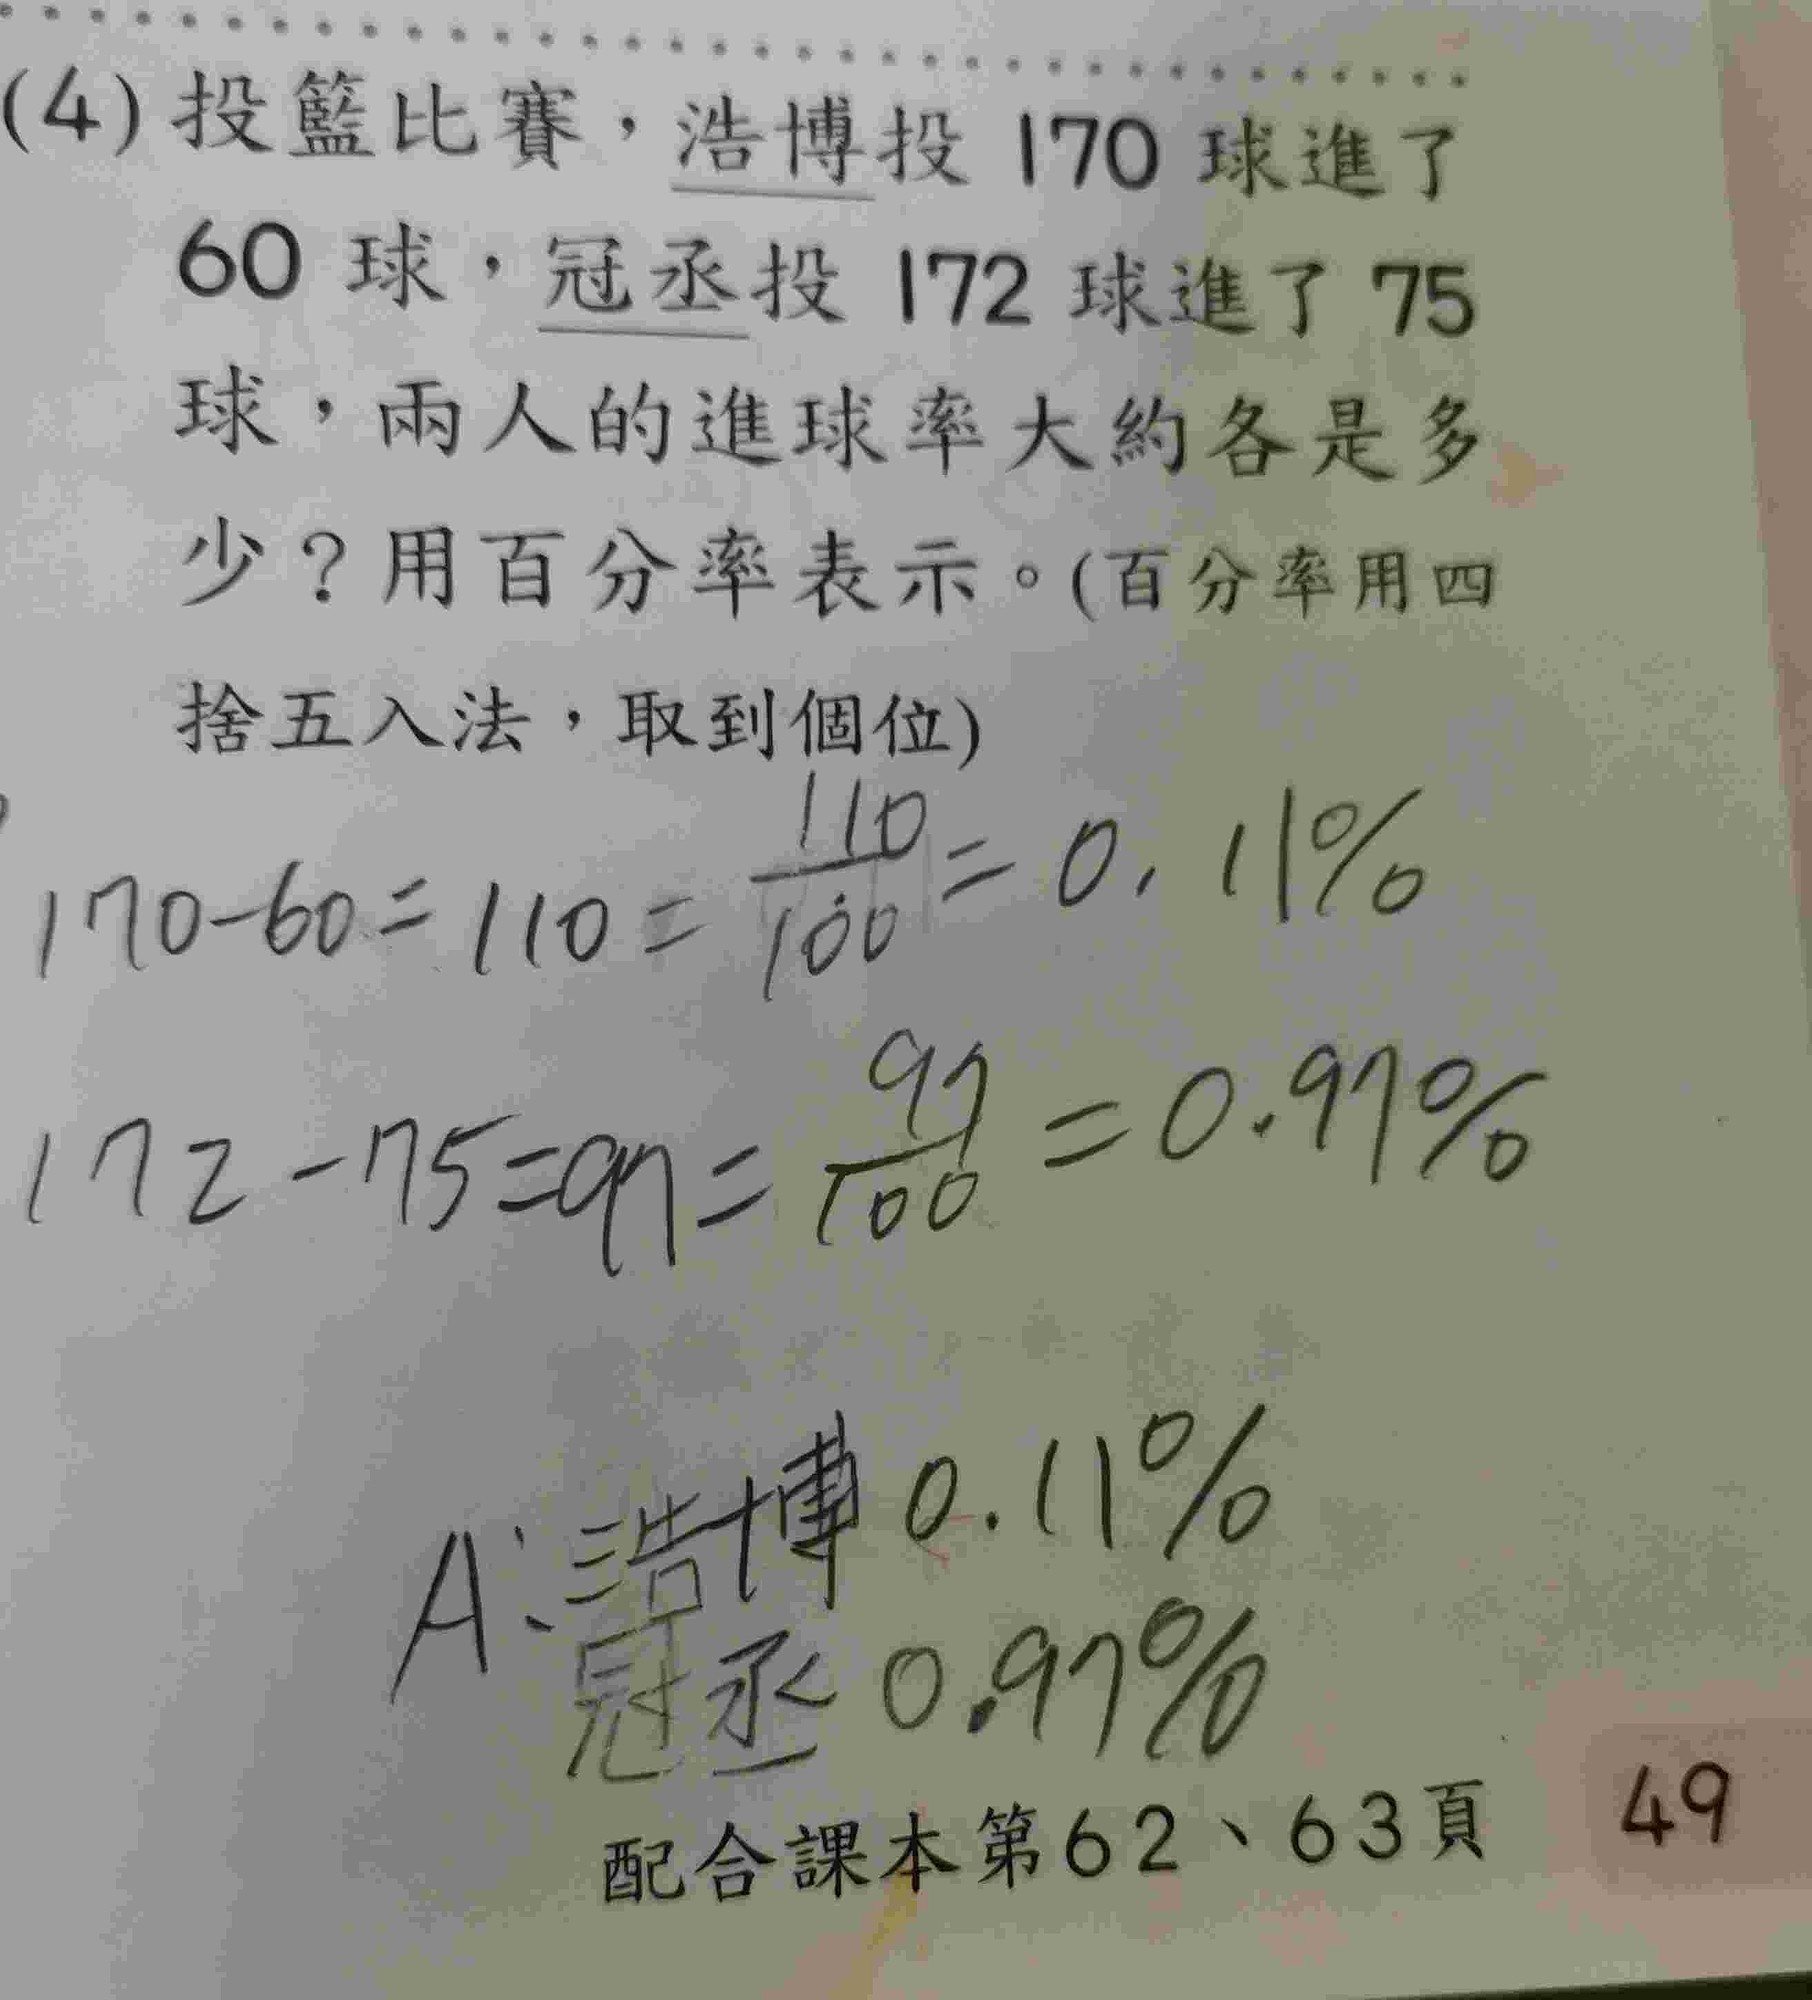 (4) 投籃比賽，浩博投 170 球進了
60 球，冠丞投 172 球進了 75
球，兩人的進球率大約各是多
少？用百分率表示。(百分率用四
捨五入法，取到個位)
170-60=110=110/100=0.11%
172-75=97=97/100=0.97%
A:浩博0.11%
冠丞0.97%
配合課本第62、63頁 49